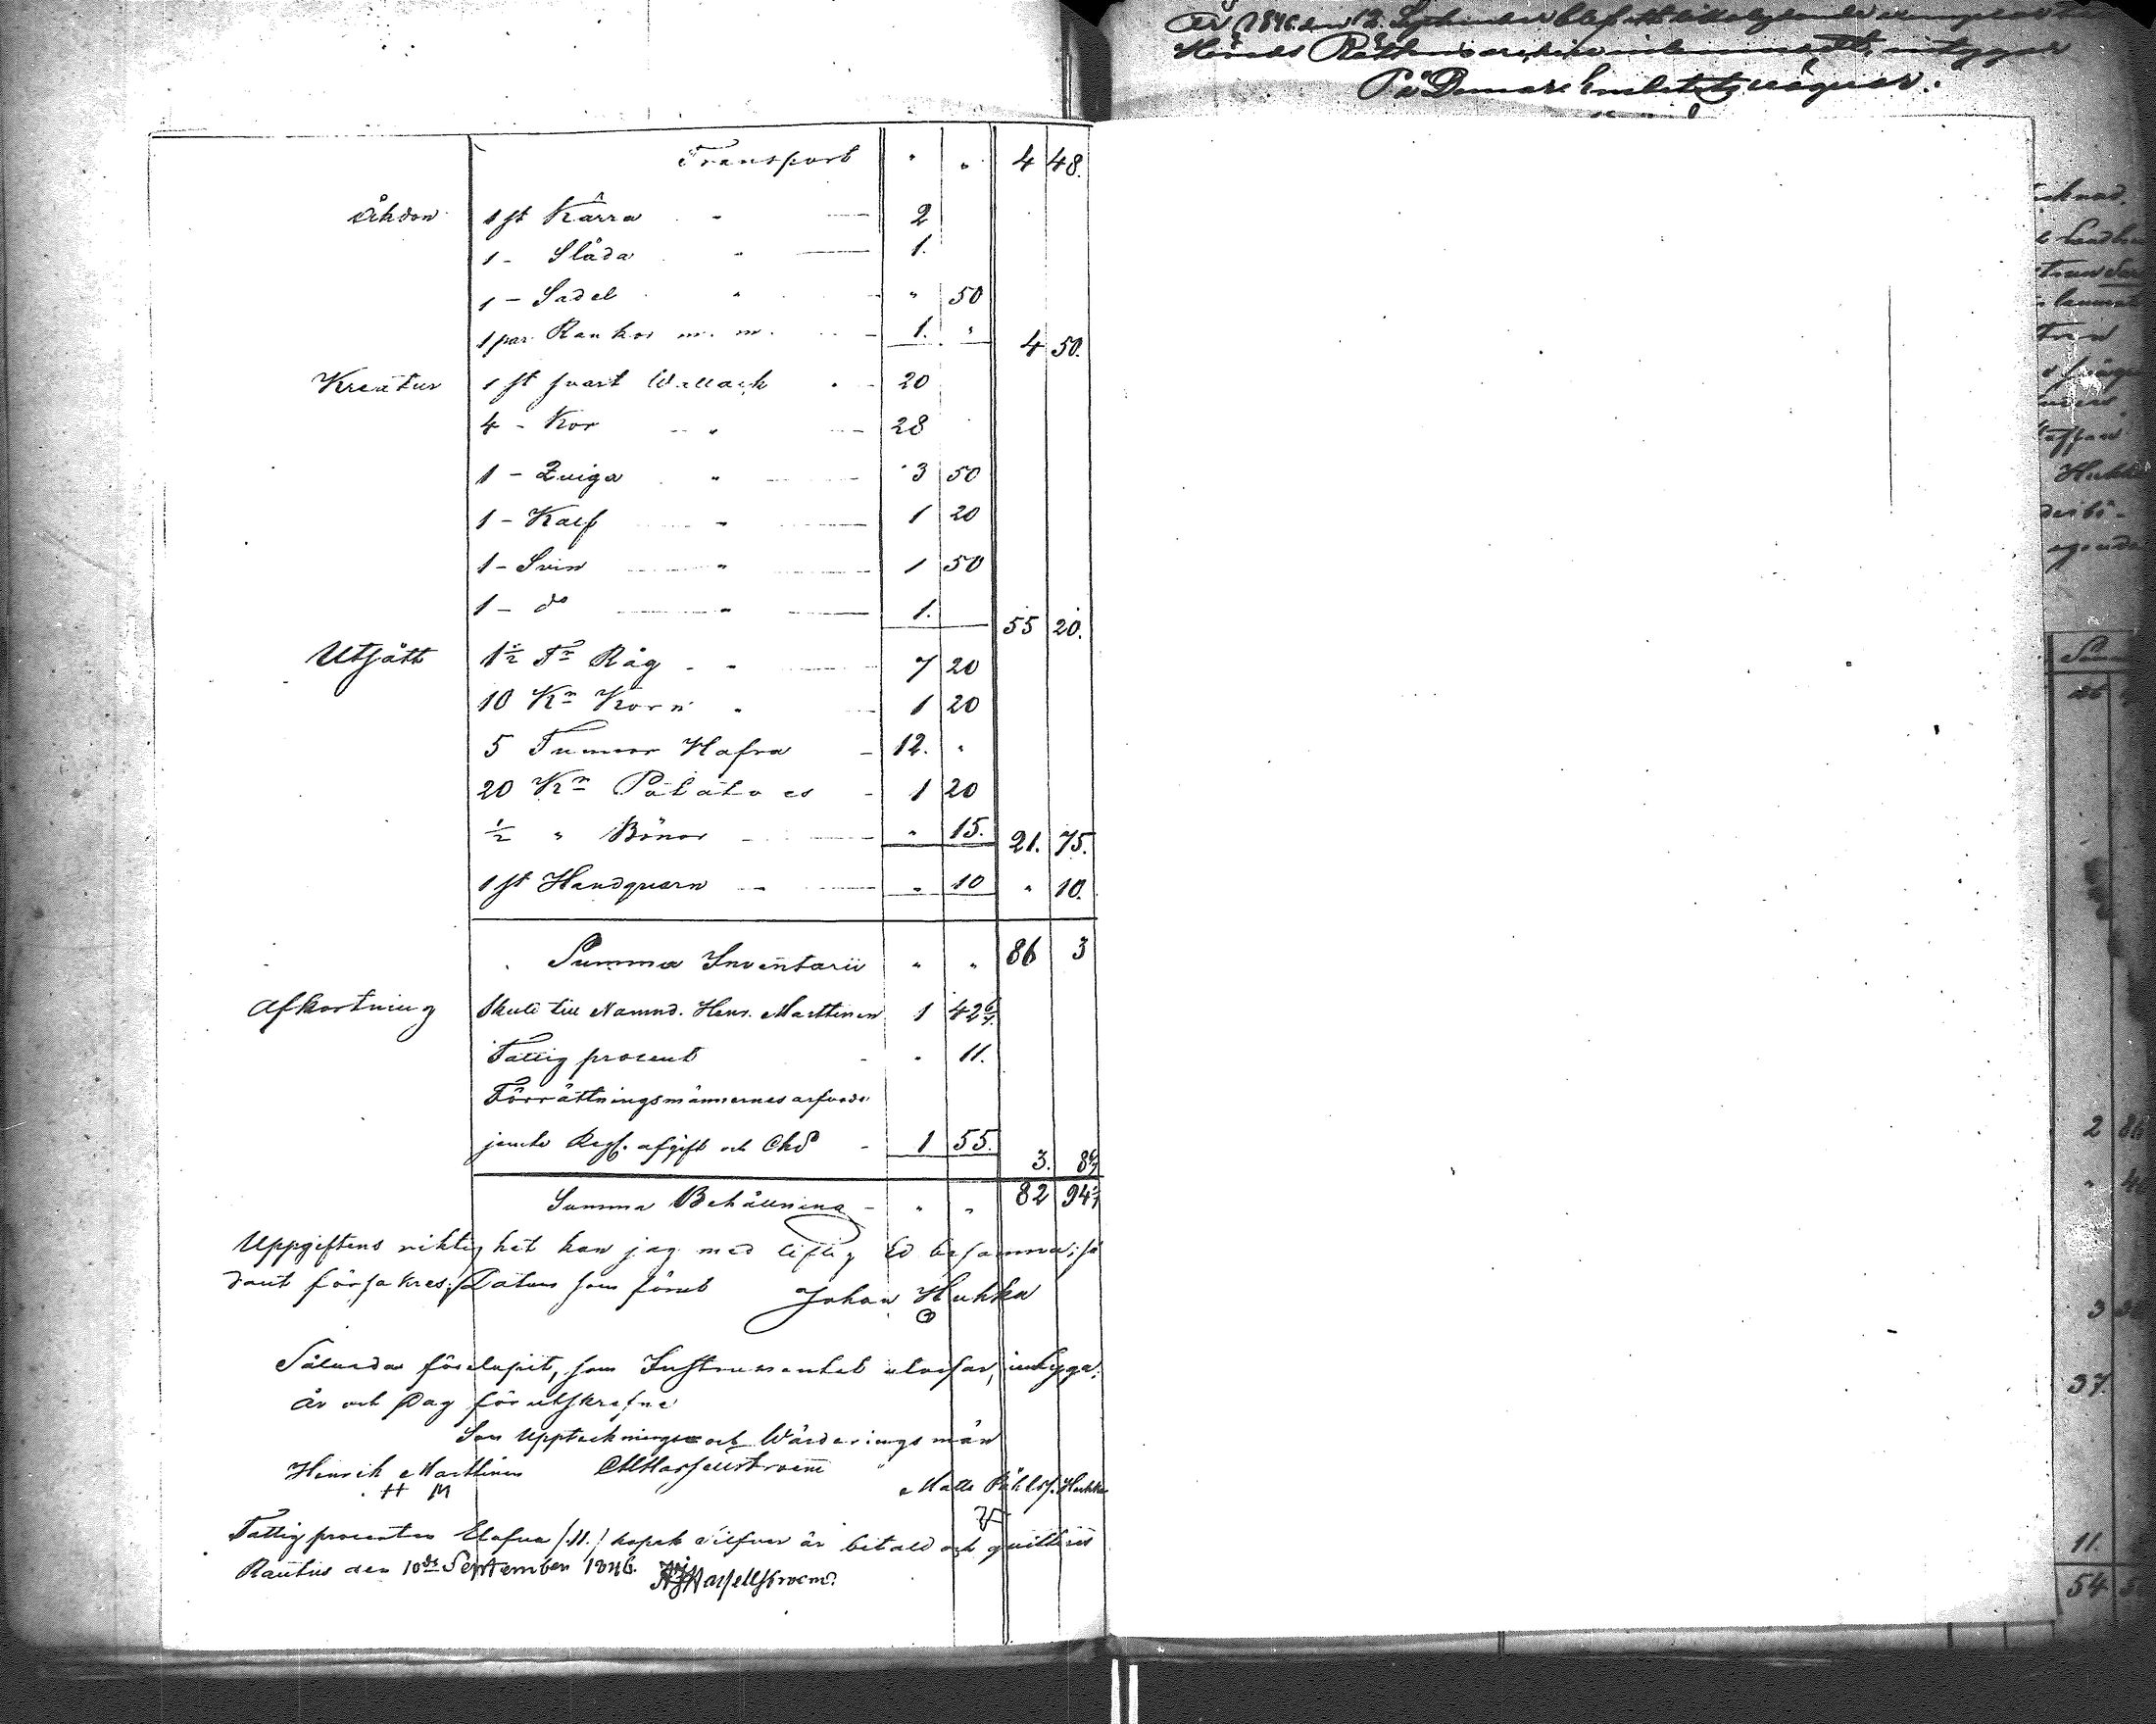 År 1846 den 12 September blef ett lika lydande exemplar till
Härads Rättens arkiv inlemnadt, intygar
På Domare Embetets vägnar.
Transport " " 4 48.
Åkdon 1 st Kärra " 2
1 - Släda " 1.
1 - Sadel " " 50
1 par Rankor m. m. 1. " 4 50.
Kreatur 1 st svart Wallack 20
4 - Kor " 28
1 - Quiga " 3 50
1 - Kalf " 1 20
1 - Svin " 1 50
1 - do " 1. 55 20.
Utsäde 1½ Tr Råg 7 20
10 Kr Korn " 1 20
5 Tunnor Hafra 12. "
20 Kr Potatoes 1 20
½ " Bönor " 15. 21. 75.
1 st Handquarn " 10 " 10.
Summa Inventarii " " 86 3
Afkortning Skuld till Nämnd. Henr. Marttinen 1 42 6/7
Fattig procent " 11.
Förrättningsmännernes arfvode
jemte Regl. afgift och Chd 1 55. 3. 8 6/7
Summa Behållning " " 82 94 1/7
Uppgiftens riktighet kan jag med liflig Ed besanna; så
dant försäkres; Datum som förut Johan Hukka
Sålunda förelupit, som Instrumentet utvisar, intyga;
År och Dag förutskrefne
Som Upptecknings och Wärderings män
Henrik Marttinen Matts Påhlsf. Hukka
H M
Fattigprocenten Elofva /11./ kopek Silfver är betald och quitteras
Rautus den 10de September 1846. Hasfellstroem.